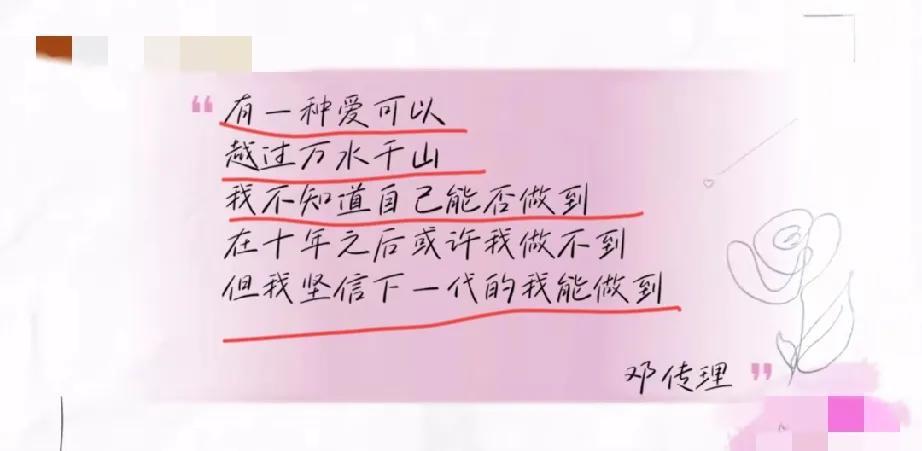 “有一种爱可以
越过万水千山
我不知道自己能否做到
在十年之后或许我做不到
但我坚信下一代的我能做到
邓传理”